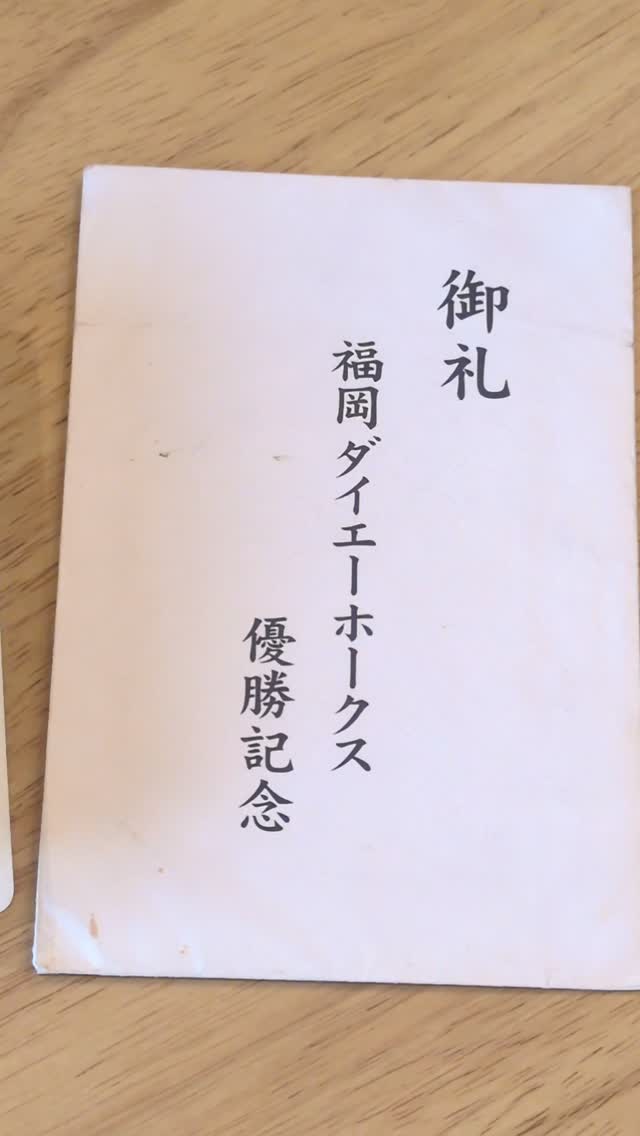 御礼
福岡ダイエーホークス
優勝記念